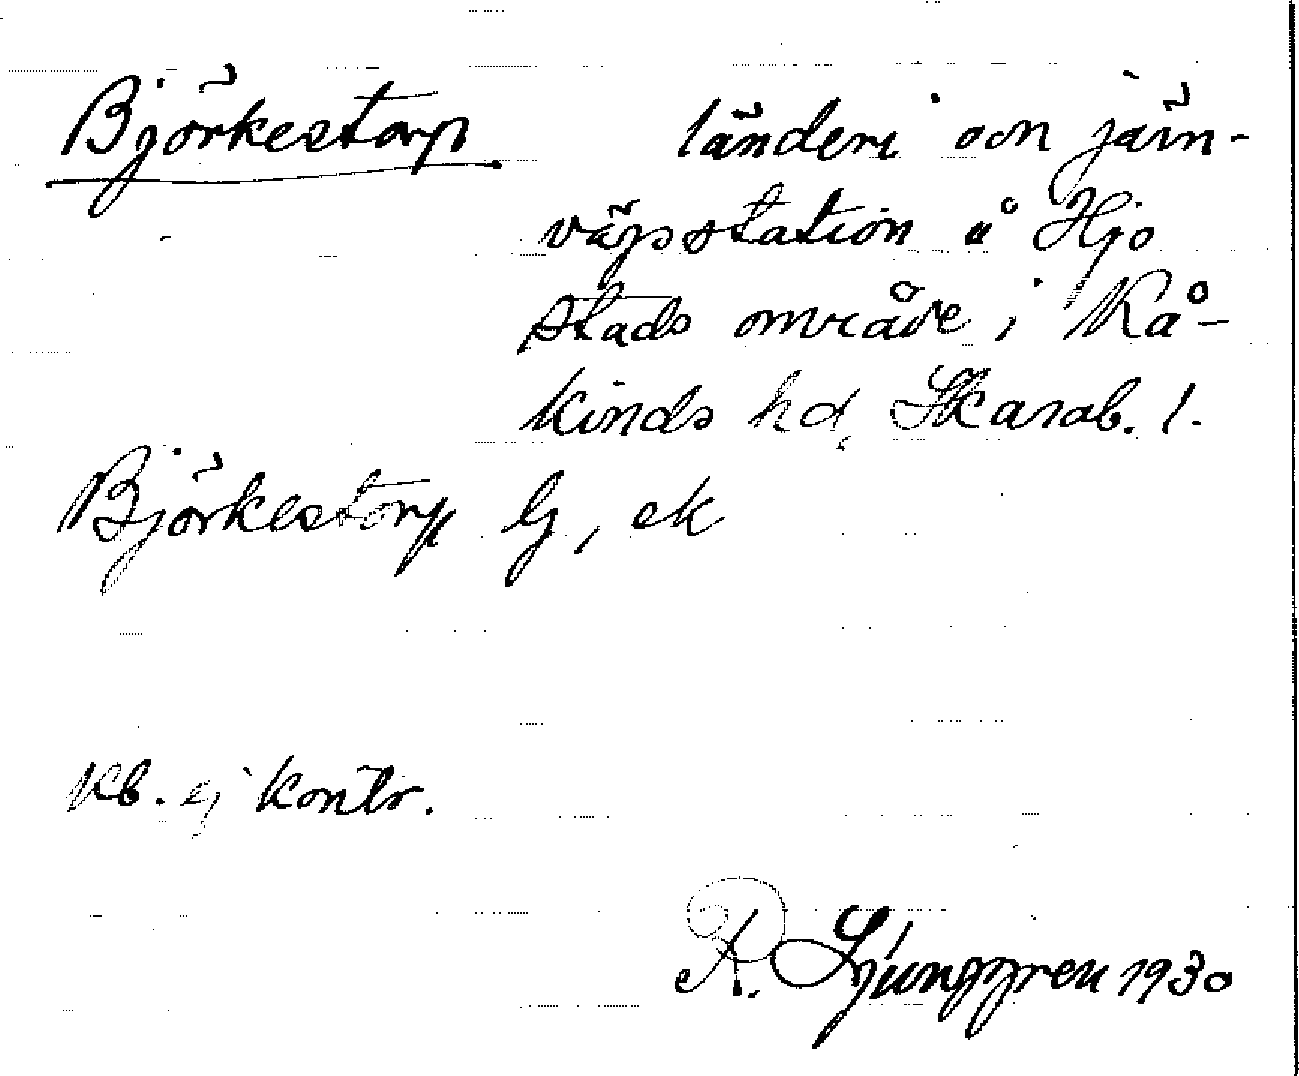 Björkestorp länderi och järn-
vägsstation å Hjo
stads område i Kå-
kinds hd, Skarab. l.
Björkestorp G, ek
Kb. ej kontr.
R. Ljunggren 1930